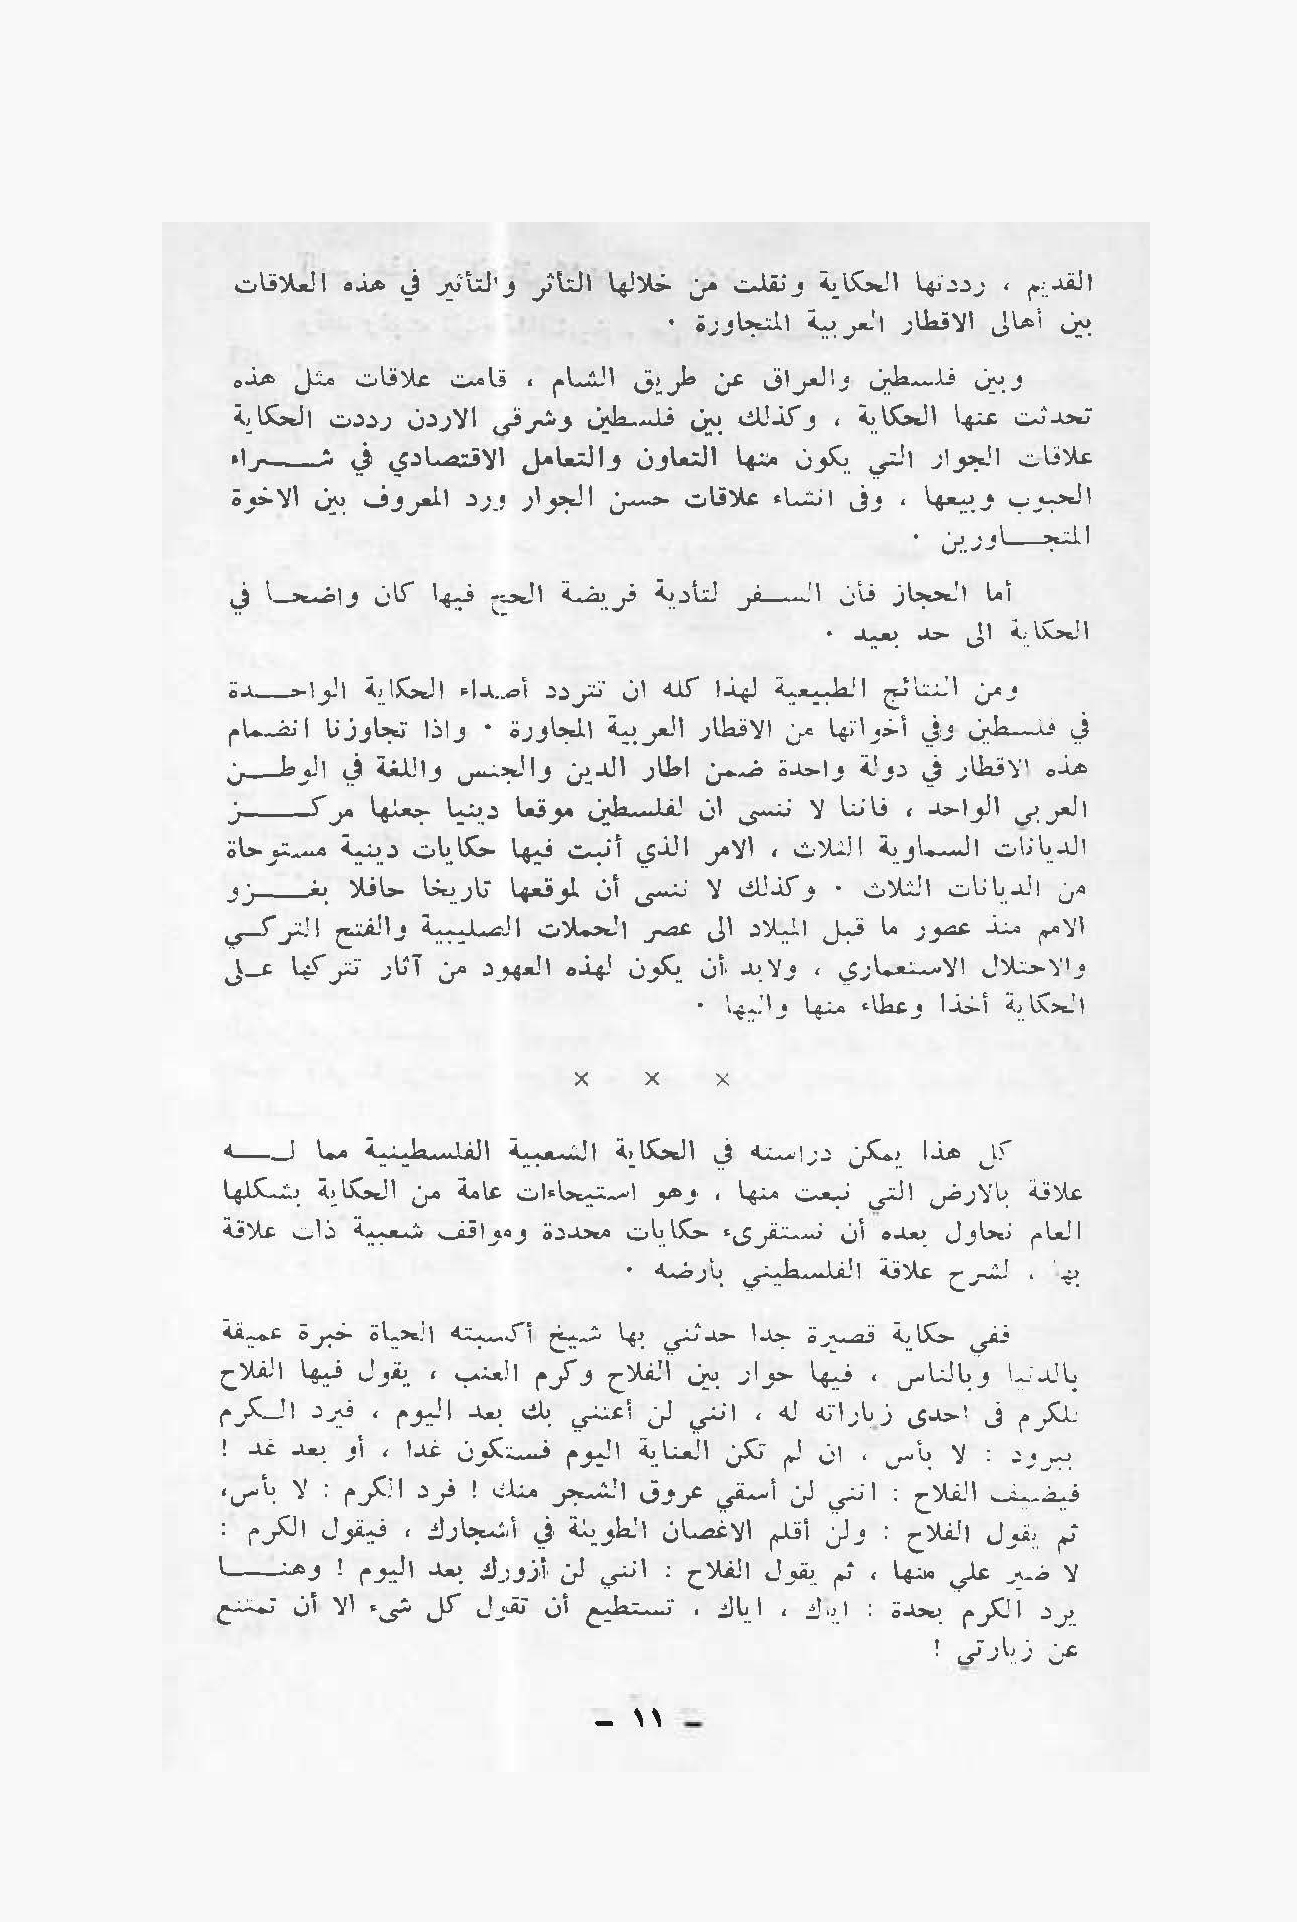 القديم ، رددتها الحكاية ونقلت من خلالها التأثر والتأثير في هذه العلاقات
بين أهالى الاقطار العربية المتجاورة ٠
وبين فلسطين والعراق عن طريق الشام ، قامت علاقات مثل هذه
تحدثت عنها الحكاية ، وكذلك بين فلسطين وشرقي الاردن رددت الحكاية
علاقات الجوار التي يكون منها التعاون والتعامل الاقتصادي في شـــراء
الحبوب وبيعها ، وفى انشاء علاقات حسن الجوار ورد المعروف بين الاخوة
المتجـــاورين ٠
أما الحجاز فأن الســفر لتأدية فريضة الحج فيها كان واضحـا في
الحكاية الى حد بعيد ٠
ومن النتائج الطبيعية لهذا كله ان تتردد أصداء الحكاية الواحــدة
في فلسطين وفي أخواتها من الاقطار العربية المجاورة ٠ واذا تجاوزنا انضمام
هذه الاقطار في دولة واحدة ضمن اطار الدين والجنس واللغة في الوطــن
العربي الواحد ، فاننا لا ننسى ان لفلسطين موقعا دينيا جعلها مركـــــز
الديانات السماوية الثلاث ، الامر الذي أنبت فيها حكايات دينية مستوحاة
من الديانات الثلاث ٠ وكذلك لا ننسى أن لموقعها تاريخا حافلا بغــــزو
الامم منذ عصور ما قبل الميلاد الى عصر الحملات الصليبية والفتح التركــي
والاحتلال الاستعماري ، ولابد أن يكون لهذه العهود من آثار تتركها عــلى
الحكاية أخذا وعطاء منها واليها ٠
× × ×
كل هذا يمكن دراسته في الحكاية الشعبية الفلسطينية مما لــــه
علاقة بالارض التي نبعت منها ، وهو استيحاءات عامة من الحكاية بشكلها
العام نحاول بعده أن نستقرىء حكايات محددة ومواقف شعبية ذات علاقة
بها ، لشرح علاقة الفلسطيني بأرضه ٠
ففي حكاية قصيرة جدا حدثني بها شيخ أكسبته الحياة خبرة عميقة
بالدنيا وبالناس ، فيها حوار بين الفلاح وكرم العنب ، يقول فيها الفلاح
للكرم فى احدى زياراته له ، انني لن أعتني بك بعد اليوم ، فيرد الـكرم
ببرود : لا بأس ، ان لم تكن العناية اليوم فستكون غدا ، أو بعد غد !
فيضيف الفلاح : انني لن أسقي عروق الشجر منك ! فرد الكرم : لا بأس،
ثم يقول الفلاح : ولن أقلم الاغصان الطويلة في أشجارك ، فيقول الكرم :
لا ضير علي منها ، ثم يقول الفلاح : انني لن أزورك بعد اليوم ! وهنــــا
يرد الكرم بحدة : اياك ، اياك ، تستطيع أن تقول كل شىء الا أن تمتنع
عن زيارتي !
– ١١ –